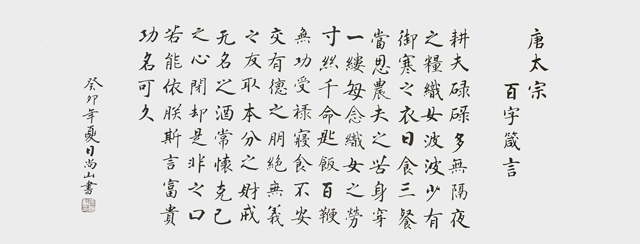 唐太宗
百字箴言
耕夫碌碌多無隔夜
之糧織女波波少有
御寒之衣日食三餐
當思農夫之苦身穿
一縷每念織女之勞
寸絲千命匙飯百鞭
無功受祿寢食不安
交有德之朋絕無義
之友取本分之財戒
无名之酒常懷克己
之心閉却是非之口
若能依朕斯言富貴
功名可久
癸卯年夏日尚山書